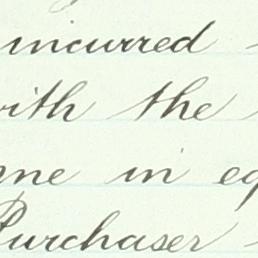 incurred
with the
in
Purchaser